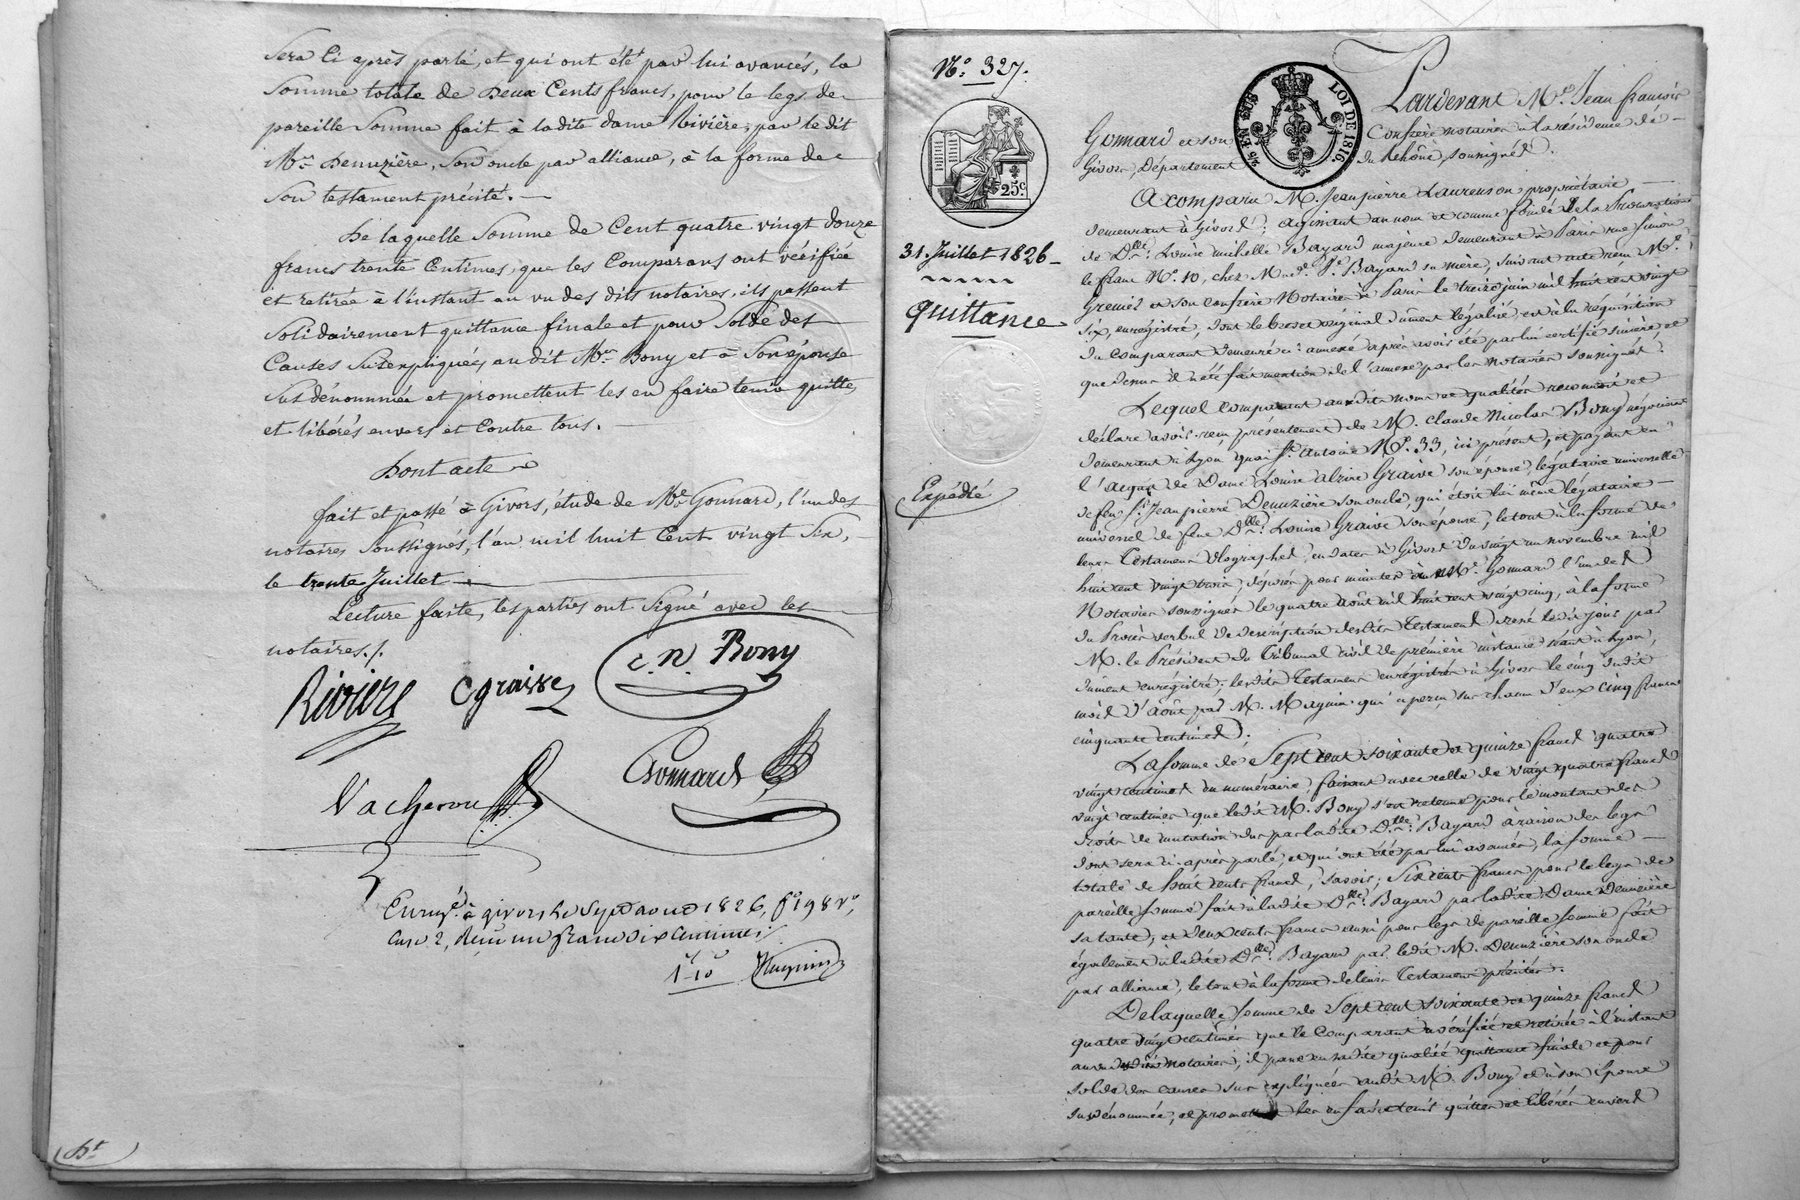 Sera ci après parlé, et qui ont été par lui avancés, la
Somme totale de Deux Cents francs, pour le legs de
pareille Somme fait à ladite dame Rivière, par le dit
Mr. Denuzière, Son oncle par alliance, à la forme de
Son testament précité.
De laquelle Somme de Cent quatre vingt douze
francs trente Centimes, que les Comparans ont vérifiée
et retirée à l'instant au vu des dits notaires, ils passent
Solidairement quittance finale et pour Solde des
Causes Susexpliquées, au dit Mr. Bony et à Son épouse
Susdénommée et promettent les en faire tenir quittes
et libérés envers et Contre tous.
Dont acte
fait et passé à Givors, étude de Me. Gonnard, l'un des
notaires Soussignés, l'an mil huit Cent vingt Six,
le trente Juillet
Lecture faite, les parties ont Signé avec les
notaires./.
Rivière C graisse c. n. Bony
Vacheron Gonnard
Enregé. à givors le Sept aout 1826, fo. 198 vo,
Case 2, Reçu un franc dix Centimes
1 f 10 c Magnin
Dt
No. 327.
25c.
2/5 EN SUS LOI DE 1816.
31. Juillet 1826
Quittance
Expédié
Pardevant Me. Jean françois
Gonnard et son Confrère notaires à la résidence de
Givors, Département du Rhône, soussignés.
A comparu M. Jean pierre Laurenson propriétaire
demeurant à Givors; agissant au nom et comme fondé de la Procuration
de Dlle. Louise michelle Bayard majeure demeurant à Paris rue Simon
le franc No. 10, chez Made. Ve. Bayard sa mère, suivant acte reçu Me.
Grenier et son confrère Notaires à Paris le treize juin mil huit cent vingt
six, enregistré, dont le brevet original dûment légalisé est à la réquisition
du comparant demeuré ci annexé après avoir été par lui certifié sincère, et
que dessus il n'été fait mention de l'annexe par les notaires soussignés.
Lequel comparant auxdits noms et qualités reconnoit et
déclare avoir reçu présentement de M. Claude Nicolas Bony négociant
demeurant à Lyon, quai St. Antoine No. 33, ici présent, et payant en
l'acquit de Dame Louise alzire Graive son épouse, légataire universelle
de feu Sr. Jean pierre Denuzière son oncle, qui étoit lui même légataire
universel de feue Dlle. Louise Graive son épouse, le tout à la forme de
leurs Testaments Olographes, en date à Givors du vingt un novembre mil
huit cent vingt trois, déposés pour minutes à Me. Gonnard l'un des
Notaires soussignés le quatre août mil huit cent vingt cinq, à la forme
du Procès verbal de description desdits Testaments dressé ledit jour par
M. le Président du Tribunal civil de première instance séant à Lyon,
dûment enregistré; lesdits Testamens enregistrés à Givors le cinq dudit
mois d'août par M. Magnin qui a perçu sur chacun d'eux cinq francs
cinquante centimes;
La somme de Sept cent soixante et quinze francs quatre
vingt centimes en numéraire, faisant avec celle de vingt quatre francs
vingt centimes que ledit M. Bony s'est retenue pour le montant des
droits de mutation dus par ladite Dlle. Bayard à raison des legs
dont sera ci-après parlé, et qui ont été par lui avancés, la somme
totale de huit cents francs, savoir; Six cents francs pour le legs de
pareille somme fait à ladite Dlle. Bayard par ladite Dame Denuzière
sa tante, et deux cents francs aussi pour legs de pareille somme fait
également à ladite Dlle. Bayard par ledit M. Denuzière son oncle
par alliance, le tout à la forme de leurs Testamens précités.
De laquelle somme de Sept cent soixante et quinze francs
quatre vingt centimes que le Comparant a vérifiée et retirée à l'instant
au vu desdits notaires, il passe en sadite qualité quittance finale et pour
solde des causes sus expliquées audit M. Bony et à son Epouse
susdénommée, et promet les en faire tenir quittes et libérés envers